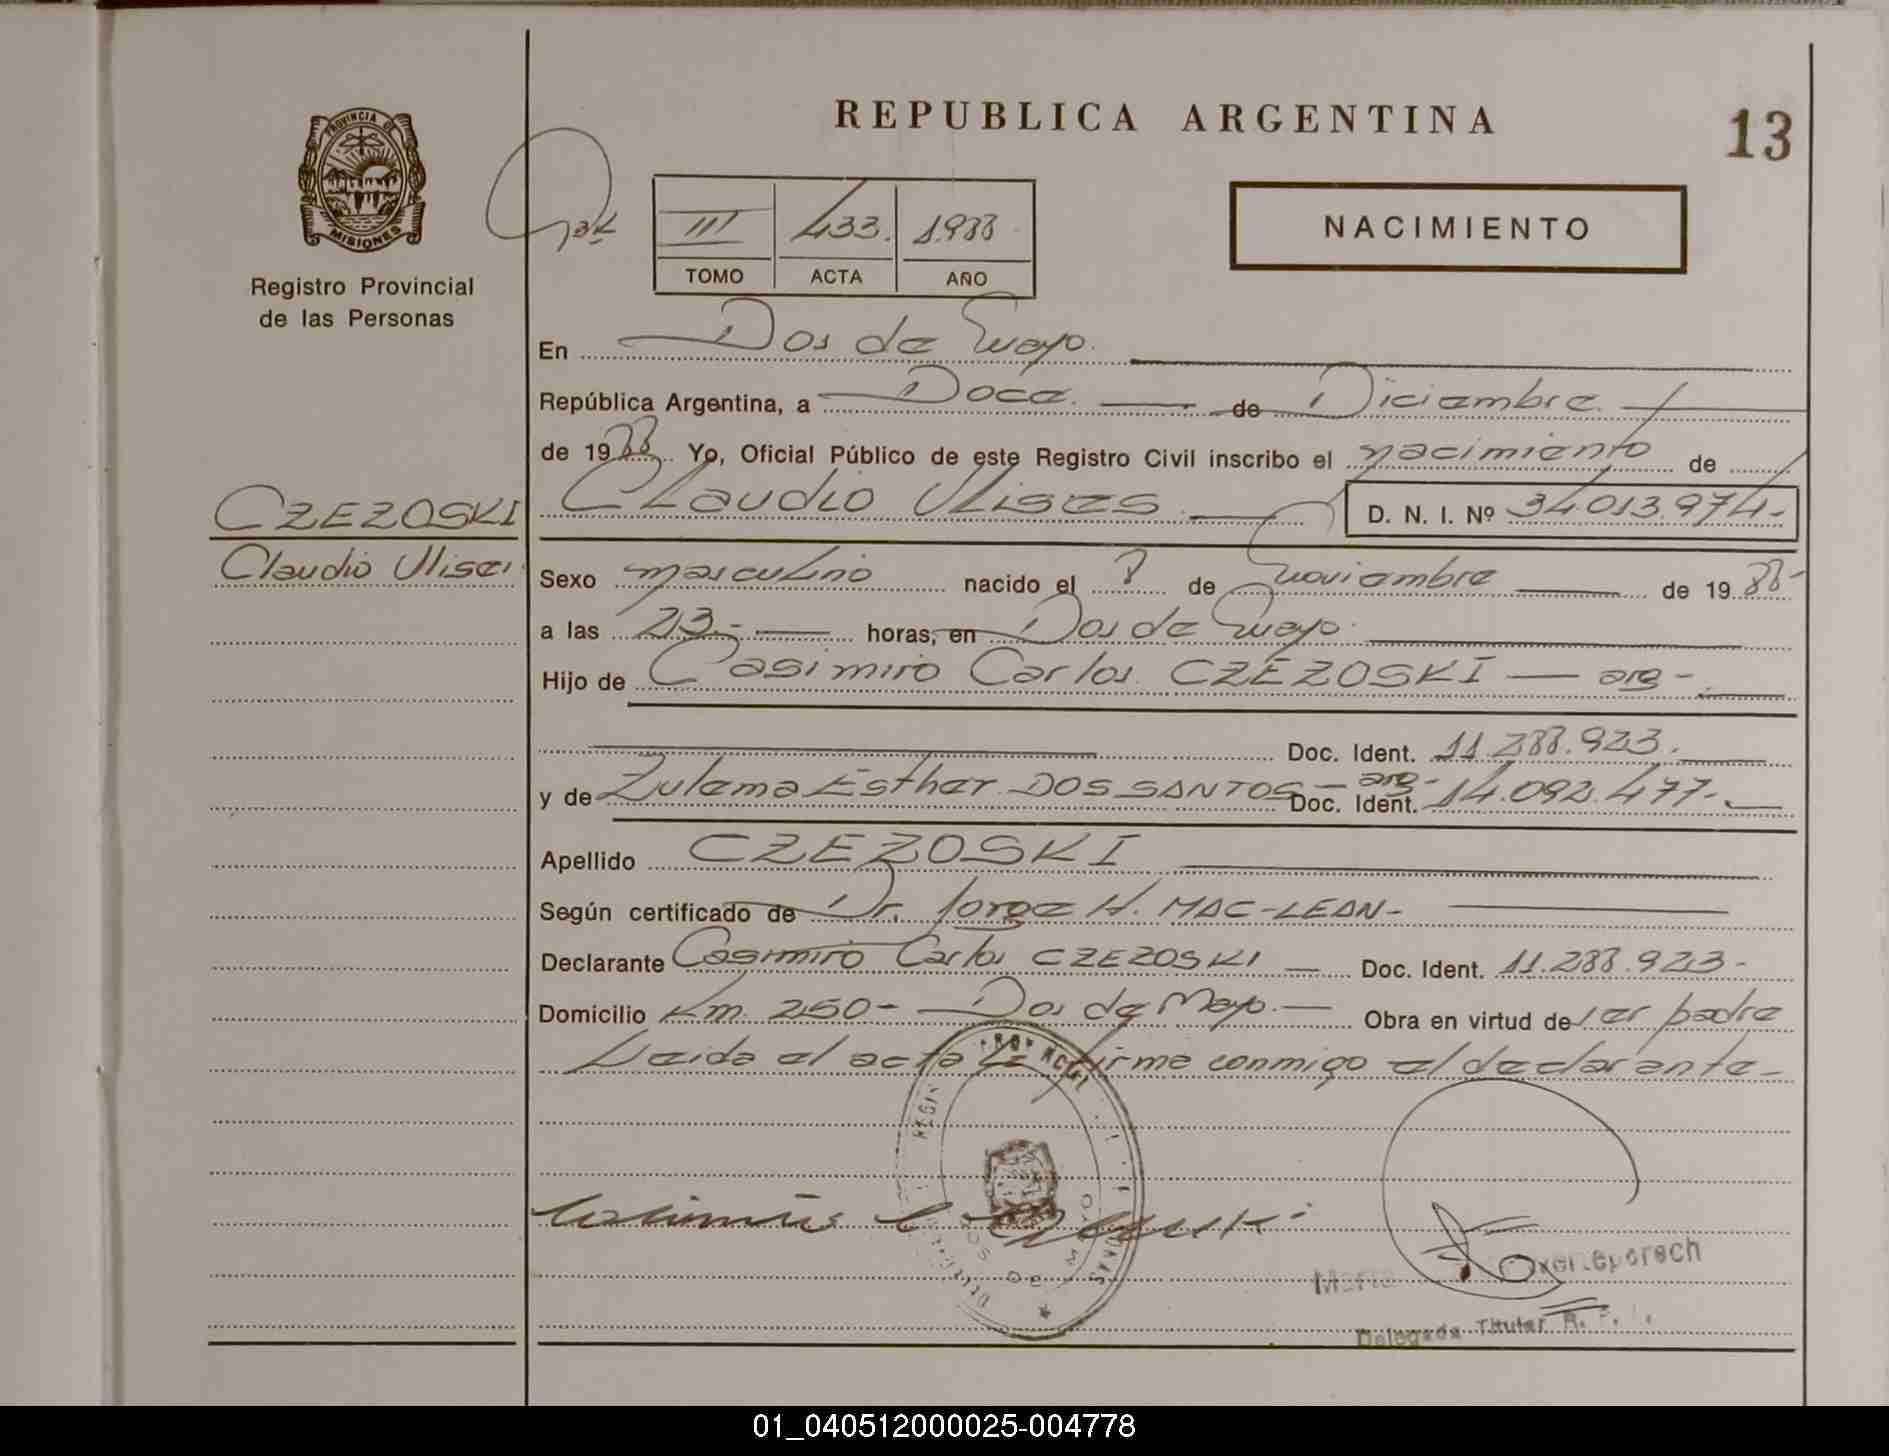 REPUBLICA ARGENTINA
13
PROVINCIA DE
MISIONES
Registro Provincial
de las Personas
III 433. 1.988
TOMO ACTA AÑO
NACIMIENTO
En Dos de Mayo.
República Argentina, a Doce. de Diciembre.
de 1988 Yo, Oficial Público de este Registro Civil inscribo el nacimiento de
CZEZOSKI
Claudio Ulises
Claudio Ulises D. N. I. Nº 34.013.974.-
Sexo masculino nacido el 8 de Noviembre de 1988-
a las 23.- horas, en Dos de Mayo.
Hijo de Casimiro Carlos CZEZOSKI — arg-.
Doc. Ident. 11.288.923.
y de Zulema Esther DOS SANTOS — arg- Doc. Ident. 14.092.477-.
Apellido CZEZOSKI
Según certificado de Dr. Jorge H. MAC-LEAN-
Declarante Casimiro Carlos CZEZOSKI — Doc. Ident. 11.288.923-
Domicilio Km. 250- Dos de Mayo.— Obra en virtud de ser padre
Leida el acta la firma conmigo el declarante-
Delegada Titular R. P.
01_040512000025-004778